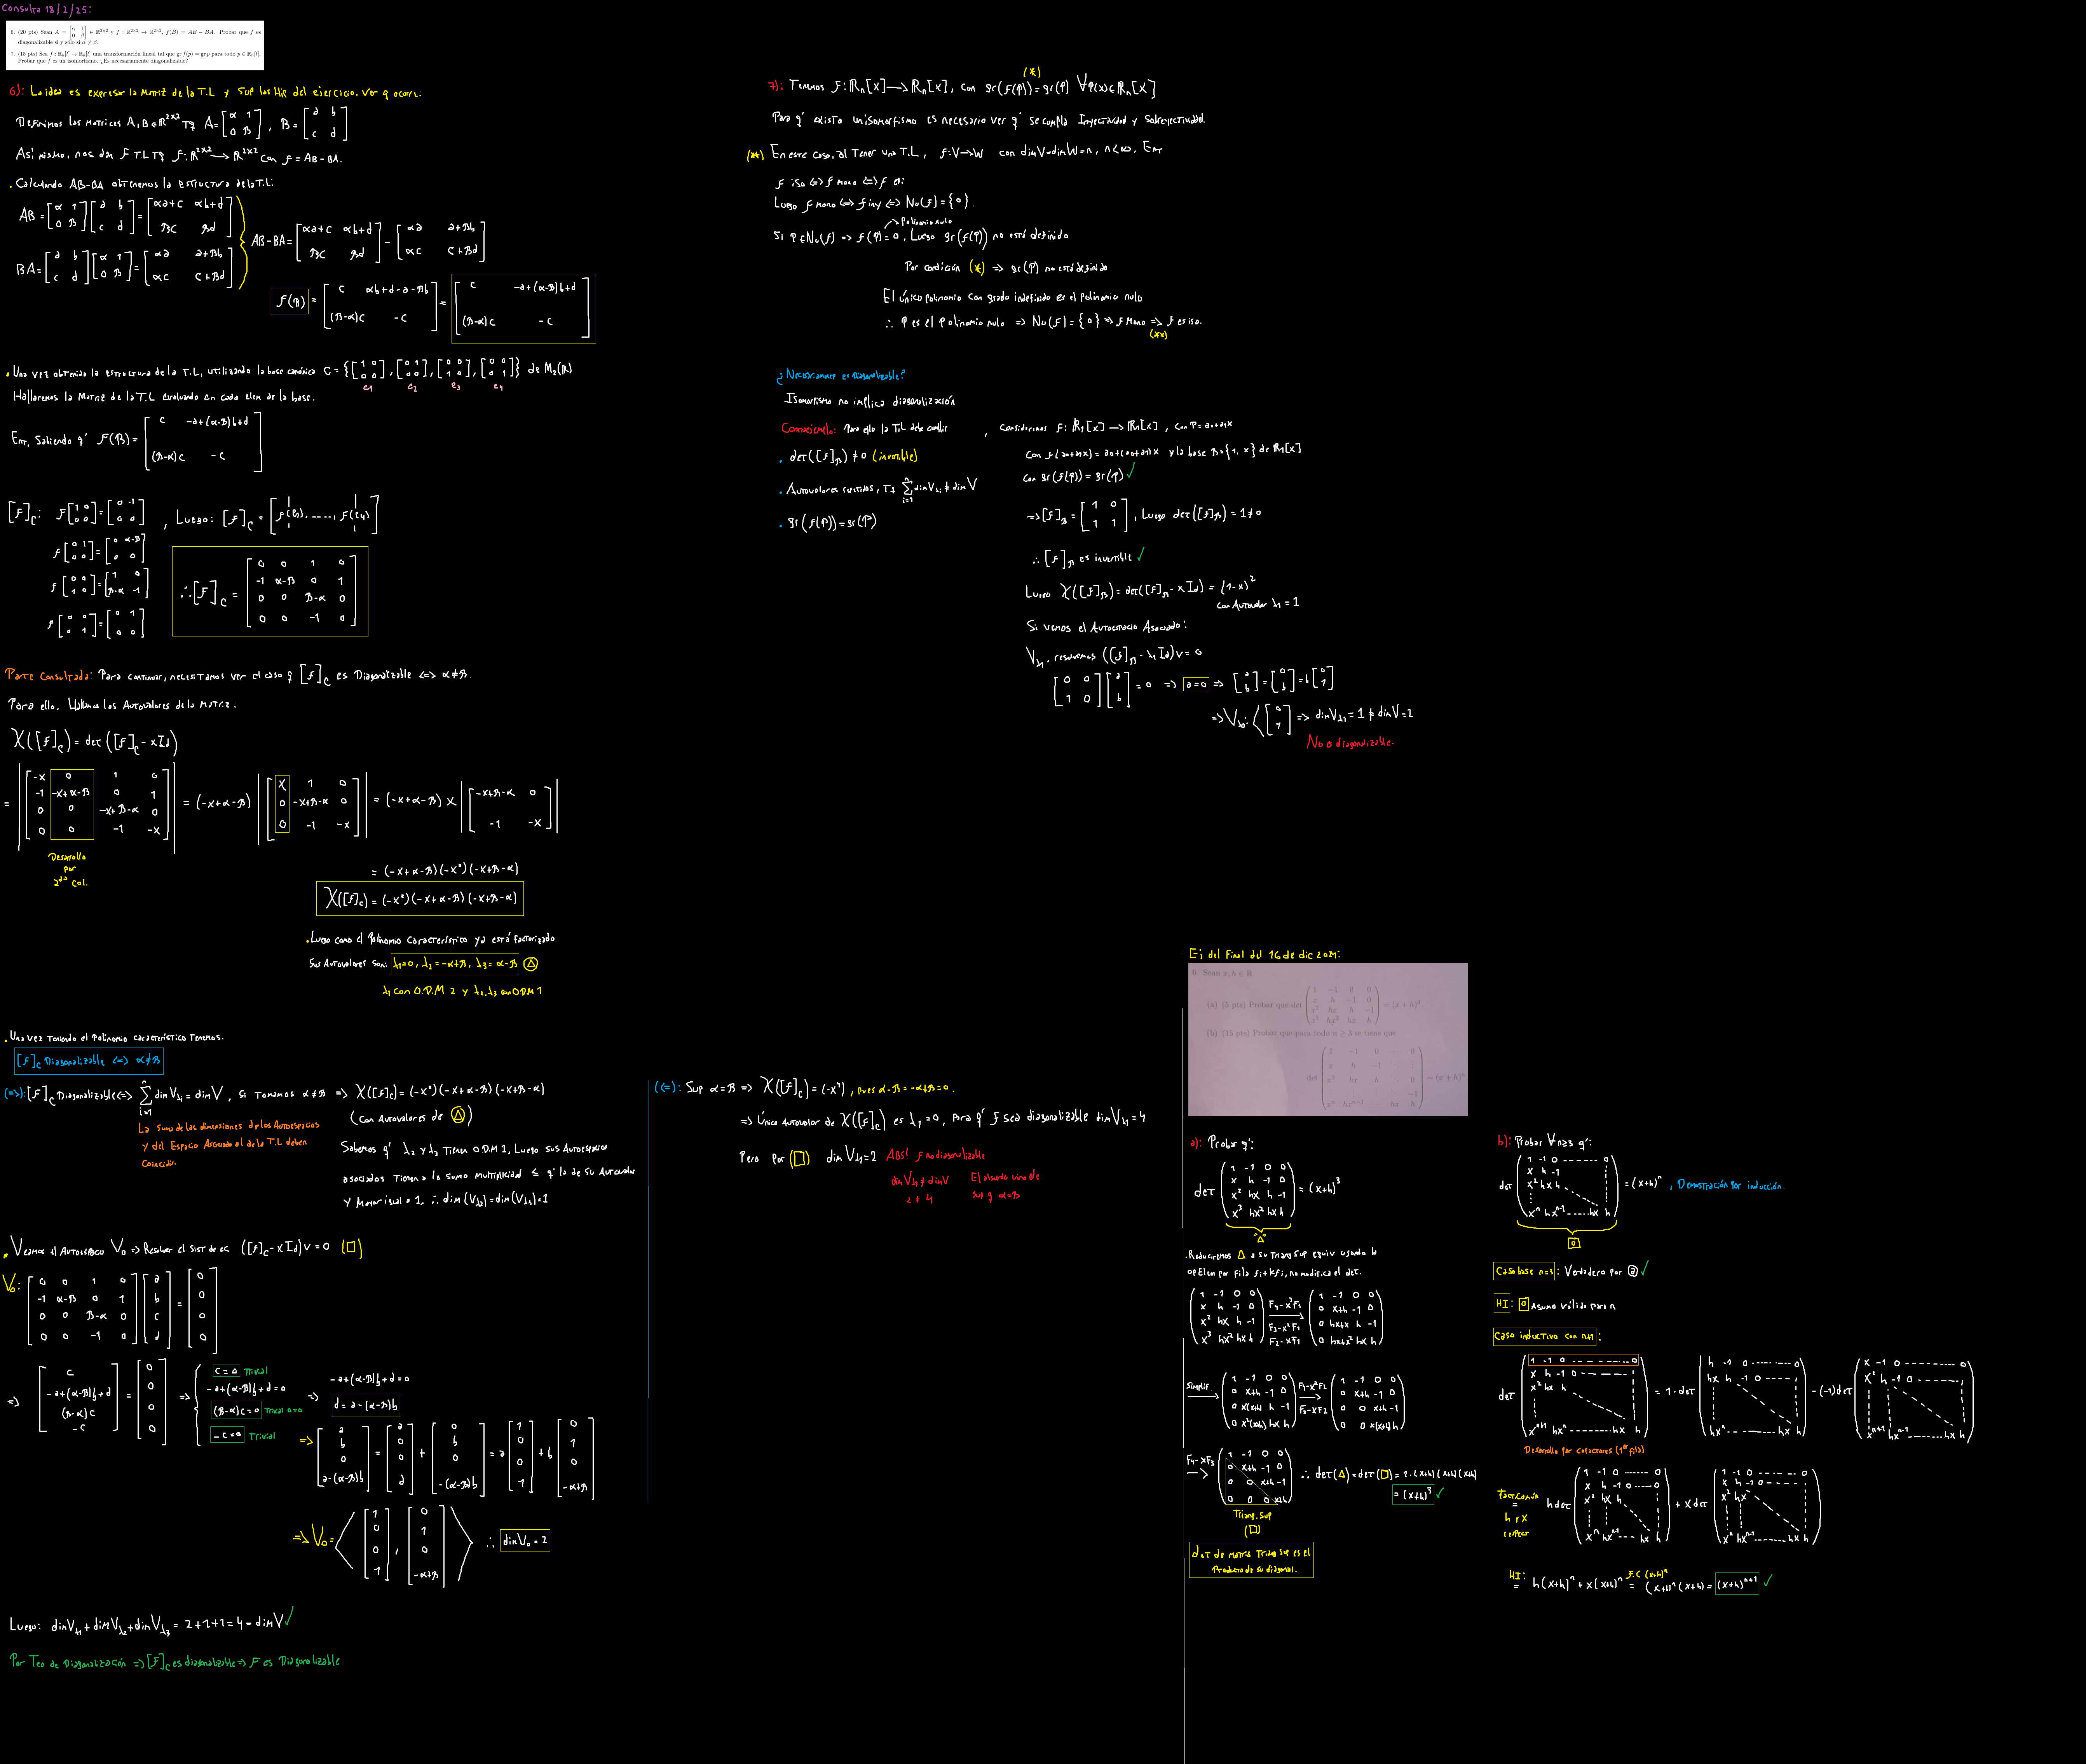 Consulta 18/2/25:
6. (20 pts) Sean A = [α 1; 0 β] ∈ ℝ²ˣ² y f : ℝ²ˣ² → ℝ²ˣ², f(B) = AB − BA. Probar que f es
diagonalizable si y sólo si α ≠ β.
7. (15 pts) Sea f : ℝₙ[t] → ℝₙ[t] una transformación lineal tal que gr f(p) = gr p para todo p ∈ ℝₙ[t].
Probar que f es un isomorfismo. ¿Es necesariamente diagonalizable?
6): La idea es expresar la Matriz de la T.L y sup las Hip del ejercicio. Ver q ocurre.
Definimos las Matrices A, B ∈ ℝ²ˣ² Tq A = [α 1; 0 β], B = [a b; c d]
Así mismo, nos dan f T.L Tq f: ℝ²ˣ² → ℝ²ˣ² con f = AB - BA.
• Calculando AB-BA obtenemos la estructura de la T.L:
AB = [α 1; 0 β][a b; c d] = [αa+c αb+d; βc βd]
BA = [a b; c d][α 1; 0 β] = [αa a+βb; αc c+βd]
AB-BA = [αa+c αb+d; βc βd] - [αa a+βb; αc c+βd]
f(B) = [c αb+d-a-βb; (β-α)c -c] = [c -a+(α-β)b+d; (β-α)c -c]
• Una vez obtenida la estructura de la T.L, utilizando la base canónica C = {[1 0; 0 0], [0 1; 0 0], [0 0; 1 0], [0 0; 0 1]} de M₂(ℝ)
e1 e2 e3 e4
Hallaremos la Matriz de la T.L evaluando en cada elem de la base.
Ent, Sabiendo q' f(B) = [c -a+(α-β)b+d; (β-α)c -c]
[f]_C: f[1 0; 0 0] = [0 -1; 0 0], Luego: [f]_C = [f(e1), ....., f(e4)]
f[0 1; 0 0] = [0 α-β; 0 0]
f[0 0; 1 0] = [1 0; β-α -1]
f[0 0; 0 1] = [0 1; 0 0]
∴ [f]_C = [0 0 1 0; -1 α-β 0 1; 0 0 β-α 0; 0 0 -1 0]
Parte Consultada: Para continuar, necesitamos ver el caso q [f]_C es Diagonalizable <=> α≠β.
Para ello, Hallamos los Autovalores de la Matriz:
χ([f]_C) = det([f]_C - xId)
= |[-x 0 1 0; -1 -x+α-β 0 1; 0 0 -x+β-α 0; 0 0 -1 -x]| = (-x+α-β) |[x 1 0; 0 -x+β-α 0; 0 -1 -x]| = (-x+α-β) x |[-x+β-α 0; -1 -x]|
Desarrollo
por
2da col.
= (-x+α-β)(-x²)(-x+β-α)
χ([f]_C) = (-x²)(-x+α-β)(-x+β-α)
• Luego como el Polinomio característico ya está factorizado.
Sus Autovalores son: λ1=0, λ2=-α+β, λ3=α-β △
λ1 con O.D.M 2 y λ2, λ3 con O.D.M 1
• Una vez Teniendo el Polinomio característico Tenemos.
[f]_C Diagonalizable <=> α≠β
(=>): [f]_C Diagonalizable <=> Σ_{i=1}^{n} dim V_λi = dim V, Si Tomamos α≠β => χ([f]_C) = (-x²)(-x+α-β)(-x+β-α)
(Con Autovalores de △)
La suma de las dimensiones de los Autoespacios
y del Espacio Asociado al de la T.L deben
Coincidir.
Sabemos q' λ2 y λ3 Tienen O.D.M 1, Luego sus Autoespacios
asociados Tienen a lo sumo multiplicidad ≤ q' la de su Autovalor
y Mayor igual a 1, ∴ dim(V_λ2) = dim(V_λ3) = 1
• Veamos el Autoespacio V₀ => Resolver el Sist de ec ([f]_C - xId)v = 0 (□)
V₀: [0 0 1 0; -1 α-β 0 1; 0 0 β-α 0; 0 0 -1 0][a; b; c; d] = [0; 0; 0; 0]
=> [c; -a+(α-β)b+d; (β-α)c; -c] = [0; 0; 0; 0] =>
c=0 Trivial
-a+(α-β)b+d=0
(β-α)c=0 Trivial 0=0
-c=0 Trivial
=> -a+(α-β)b+d=0
d = a-(α-β)b
=> [a; b; 0; a-(α-β)b] = [a; 0; 0; a] + [0; b; 0; -(α-β)b] = a[1; 0; 0; 1] + b[0; 1; 0; -α+β]
=> V₀ = ⟨[1; 0; 0; 1], [0; 1; 0; -α+β]⟩ ∴ dim V₀ = 2
Luego: dim V_λ1 + dim V_λ2 + dim V_λ3 = 2+1+1 = 4 = dim V ✓
Por Teo de Diagonalización => [f]_C es diagonalizable => f es Diagonalizable.
(<=): Sup α=β => χ([f]_C) = (-x⁴), pues α-β=-α+β=0.
=> Único Autovalor de χ([f]_C) es λ1=0, para q' f sea diagonalizable dim V_λ1=4
Pero por (□) dim V_λ1=2 ABS! f no diagonalizable
dim V_λ1 ≠ dim V
2 ≠ 4
El absurdo vino de
sup q α=β
7): Tenemos f: ℝₙ[x] → ℝₙ[x], con gr(f(P)) = gr(P) ∀P(x) ∈ ℝₙ[x]
(*)
Para q' exista un isomorfismo es necesario ver q' se cumpla Inyectividad y Sobreyectividad.
(**) En este caso, al Tener una T.L, f: V→W con dim V=dim W=n, n<∞, Ent
f iso <=> f mono <=> f epi
Luego f mono <=> f iny <=> Nu(f) = {0}.
Polinomio nulo
Si P ∈ Nu(f) => f(P) = 0, Luego gr(f(P)) no está definido
Por condición (*) => gr(P) no está definido
El único polinomio con grado indefinido es el polinomio nulo
∴ P es el Polinomio nulo => Nu(f) = {0} => f Mono => f es iso.
(**)
¿Necesariamente es Diagonalizable?
Isomorfismo no implica diagonalización
Contraejemplo: Para ello la T.L debe cumplir
• det([f]_B) ≠ 0 (invertible)
• Autovalores repetidos, Tq Σ_{i=1}^{n} dim V_λi ≠ dim V
• gr(f(P)) = gr(P)
, Consideremos f: ℝ₁[x] → ℝ₁[x], con P = a0+a1x
Con f(a0+a1x) = a0+(a0+a1)x y la base B={1, x} de ℝ₁[x]
Con gr(f(P)) = gr(P) ✓
=> [f]_B = [1 0; 1 1], Luego det([f]_B) = 1 ≠ 0
∴ [f]_B es invertible ✓
Luego χ([f]_B) = det([f]_B - xId) = (1-x)²
con Autovalor λ1 = 1
Si vemos el Autoespacio Asociado:
V_λ1, resolvemos ([f]_B - λ1 Id)v = 0
[0 0; 1 0][a; b] = 0 => a=0 => [a; b] = [0; b] = b[0; 1]
=> V_λ1: ⟨[0; 1] => dim V_λ1 = 1 ≠ dim V = 2
No es diagonalizable.
Ej del Final del 16 de dic 2021:
6. Sean x, h ∈ ℝ
(a) (5 pts) Probar que det (1 -1 0 0; x h -1 0; x² hx h -1; x³ hx² hx h) = (x + h)³
(b) (15 pts) Probar que para todo n ≥ 3 se tiene que
det (1 -1 0 ⋯ 0; x h -1 ⋯; x² hx h ⋯ 0; -1; xⁿ hxⁿ⁻¹ ⋯ hx h) = (x + h)ⁿ
a): Probar q':
det (1 -1 0 0; x h -1 0; x² hx h -1; x³ hx² hx h) = (x+h)³
"△"
• Reduciremos △ a su Triang Sup equiv usando la
op Elem por Fila fi+kfj, no modifica el det.
(1 -1 0 0; x h -1 0; x² hx h -1; x³ hx² hx h) F4-x³F1 F3-x²F1 F2-xF1 → (1 -1 0 0; 0 x+h -1 0; 0 hx+x² h -1; 0 hx²+x³ hx h)
Simplif → (1 -1 0 0; 0 x+h -1 0; 0 x(x+h) h -1; 0 x²(x+h) hx h) F4-x²F2 F3-xF2 → (1 -1 0 0; 0 x+h -1 0; 0 0 x+h -1; 0 0 x(x+h) h)
F4-xF3 → (1 -1 0 0; 0 x+h -1 0; 0 0 x+h -1; 0 0 0 x+h) ∴ det(△) = det(□) = 1·(x+h)(x+h)(x+h)
= (x+h)³ ✓
Triang. Sup
(□)
det de Matriz Triang Sup es el
Producto de su diagonal.
b): Probar ∀n≥3 q':
det (1 -1 0 ------- 0; x h -1; x² hx h; xⁿ hxⁿ⁻¹ ------ hx h) = (x+h)ⁿ, Demostración por inducción
Caso base n=3: Verdadero por a ✓
HI: Asumo válido para n
Caso inductivo con n+1:
det (1 -1 0 ------- 0; x h -1 0 ------ 0; x² hx h; xⁿ⁺¹ hxⁿ ------ hx h) = 1·det (h -1 0 ------ 0; hx h -1 0 ---- 0; hxⁿ ------ hx h) - (-1)det (x -1 0 ------ 0; x² h -1 0 ---- 0; xⁿ⁺¹ hxⁿ⁻¹ ------ hx h)
Desarrollo por cofactores (1ra Fila)
Fact. Común
h y x
respect
= h det (1 -1 0 ------ 0; x h -1 0 ---- 0; x² hx h; xⁿ hxⁿ⁻¹ ---- hx h) + x det (1 -1 0 ------ 0; x h -1 0 ---- 0; x² hx; xⁿ hxⁿ⁻¹ ---- hx h)
HI: = h(x+h)ⁿ + x(x+h)ⁿ = (x+h)ⁿ(x+h) = (x+h)ⁿ⁺¹ ✓
F.C (x+h)ⁿ